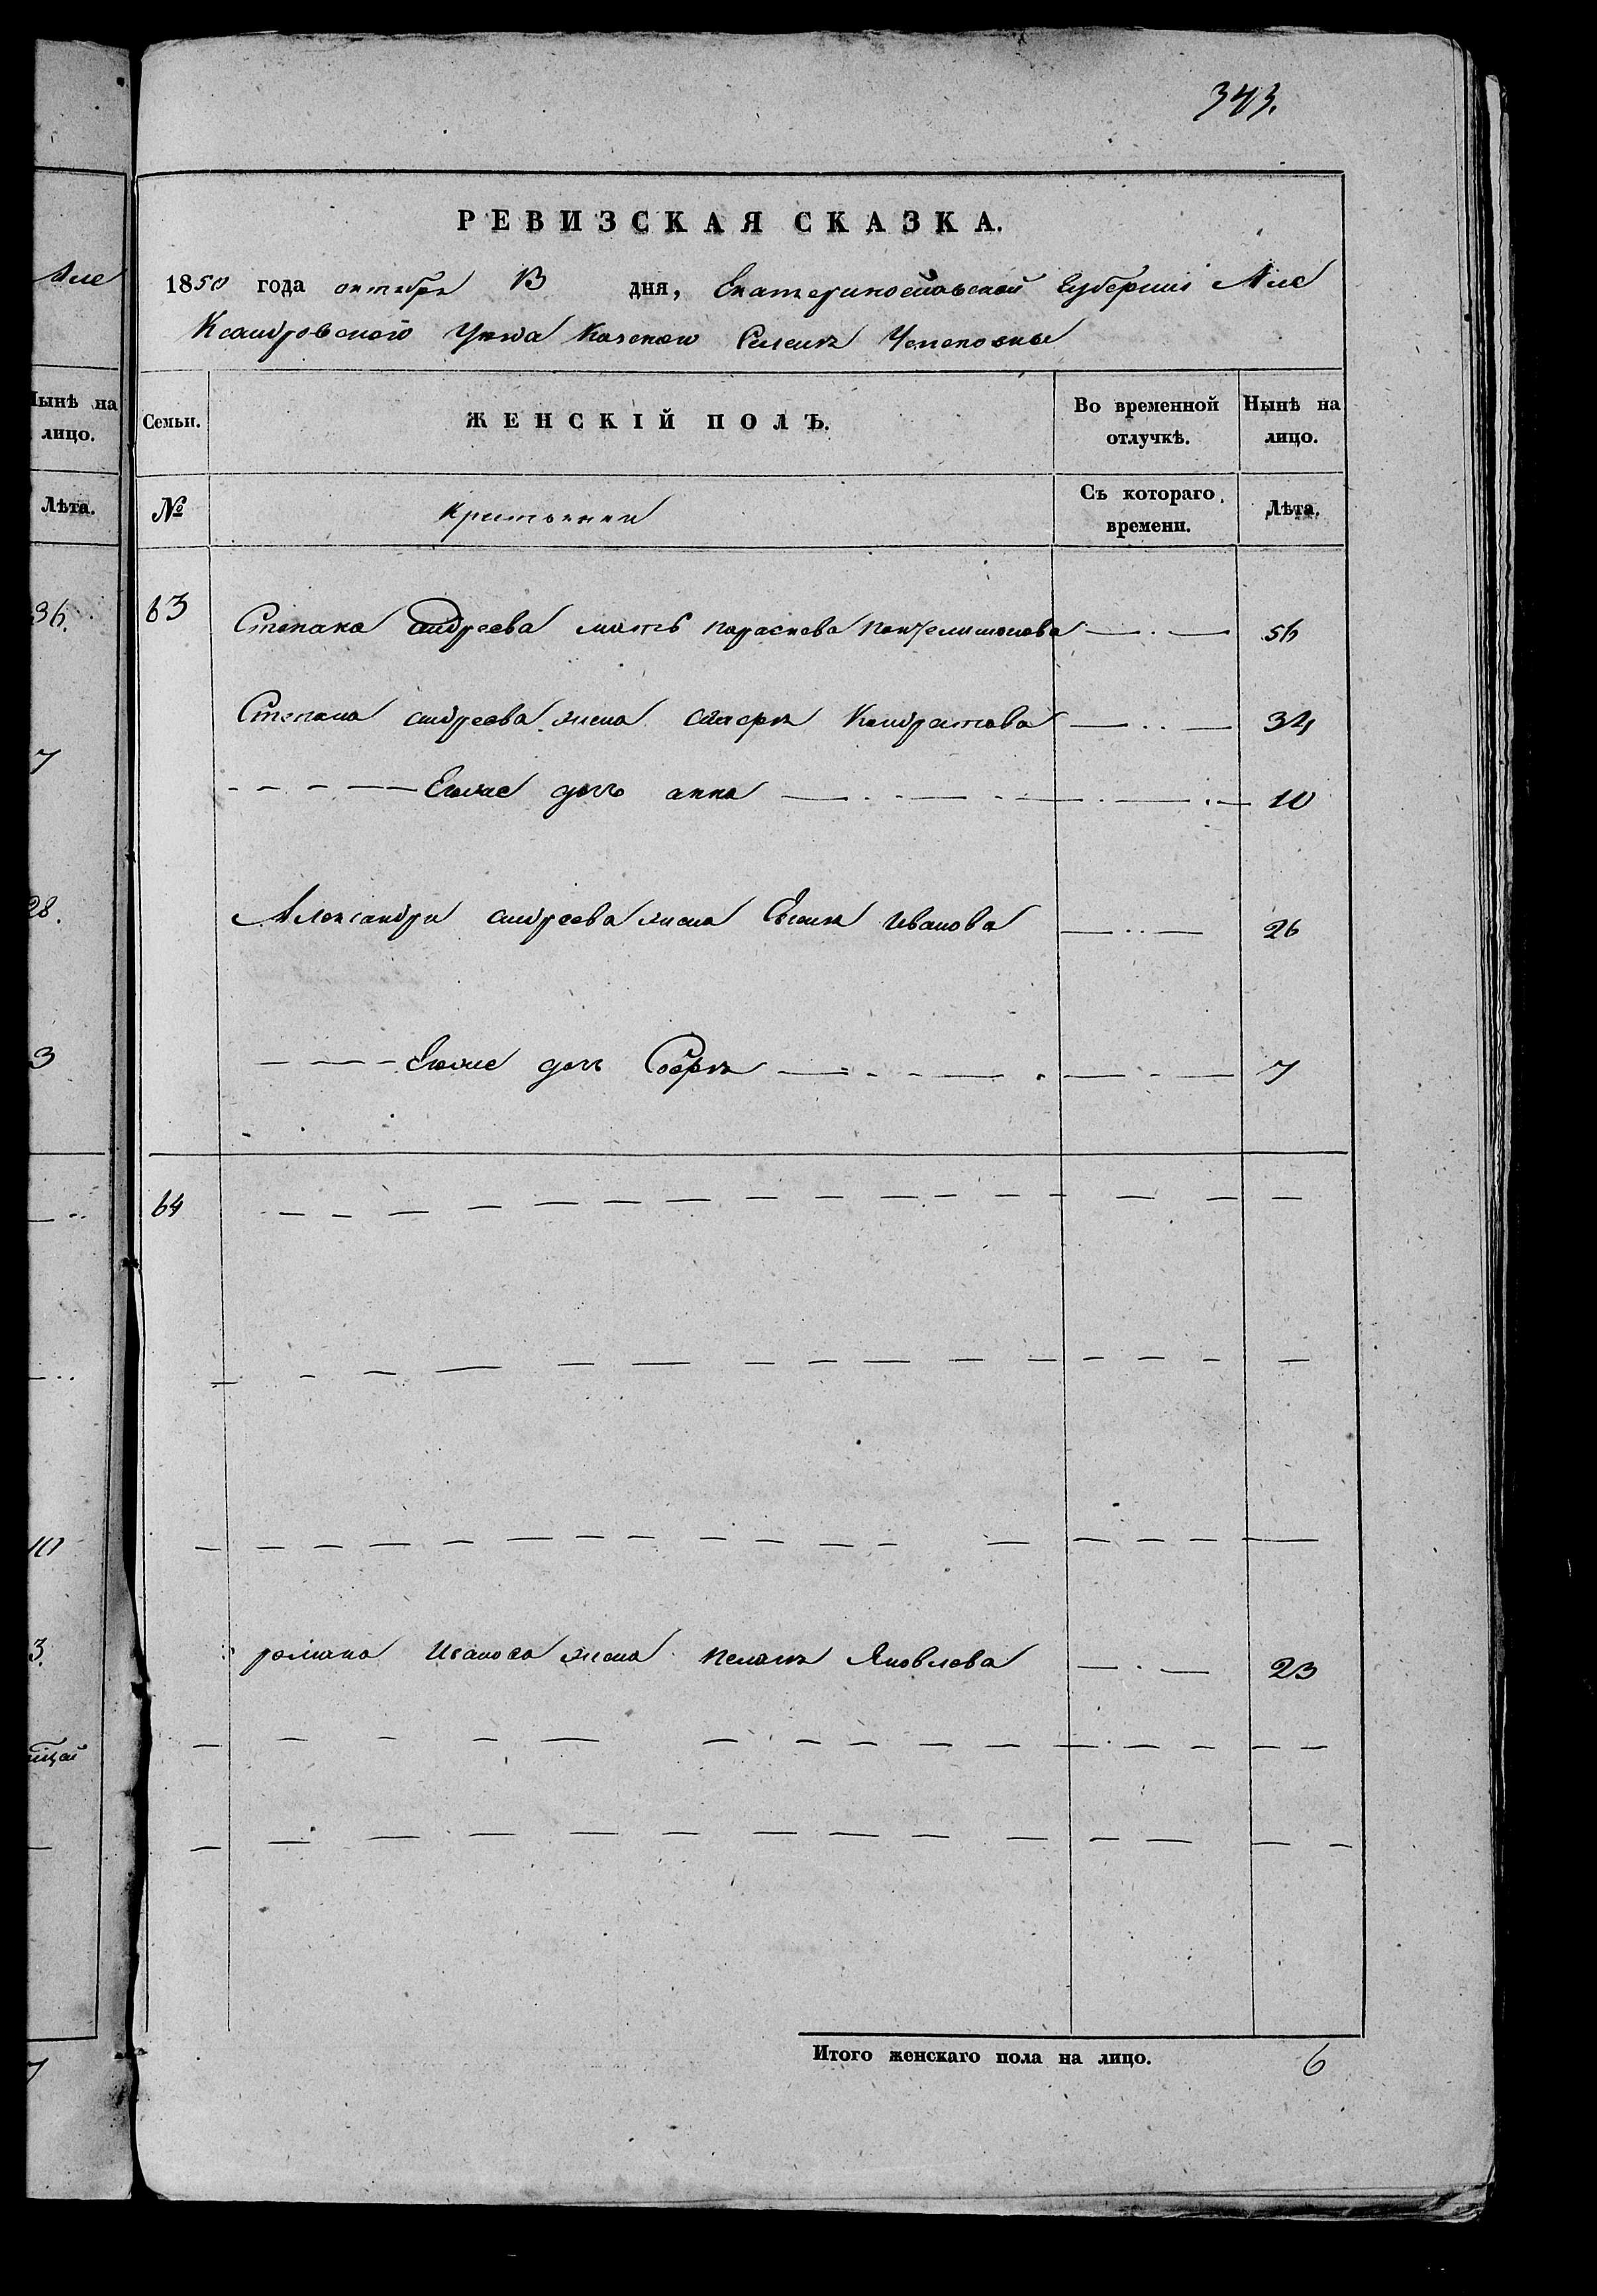 343.
РЕВИЗСКАЯ СКАЗКА.
1850 года октября 13 дня, Екатеринославской Губернии Але
Ксандровского Уезда Казенной Селения
Семьи.
ЖЕНСКІЙ ПОЛЪ.
Во временной отлучкѣ.
Нынѣ на лицо.
№
Съ котораго времени.
Лѣта.
63 Степана андреева мать параскева 56
Степана андреева жена Кондратова 34
Егоже дочь анна 10
Александра андреева жена Иванова 26
Егоже дочь Софья 7
64
романа Иванова жена пелагея Яковлева 23
Итого женскаго пола на лицо. 6
Але
Нынѣ на
лицо.
Лѣта.
36.
7
28.
3
10
3.
7